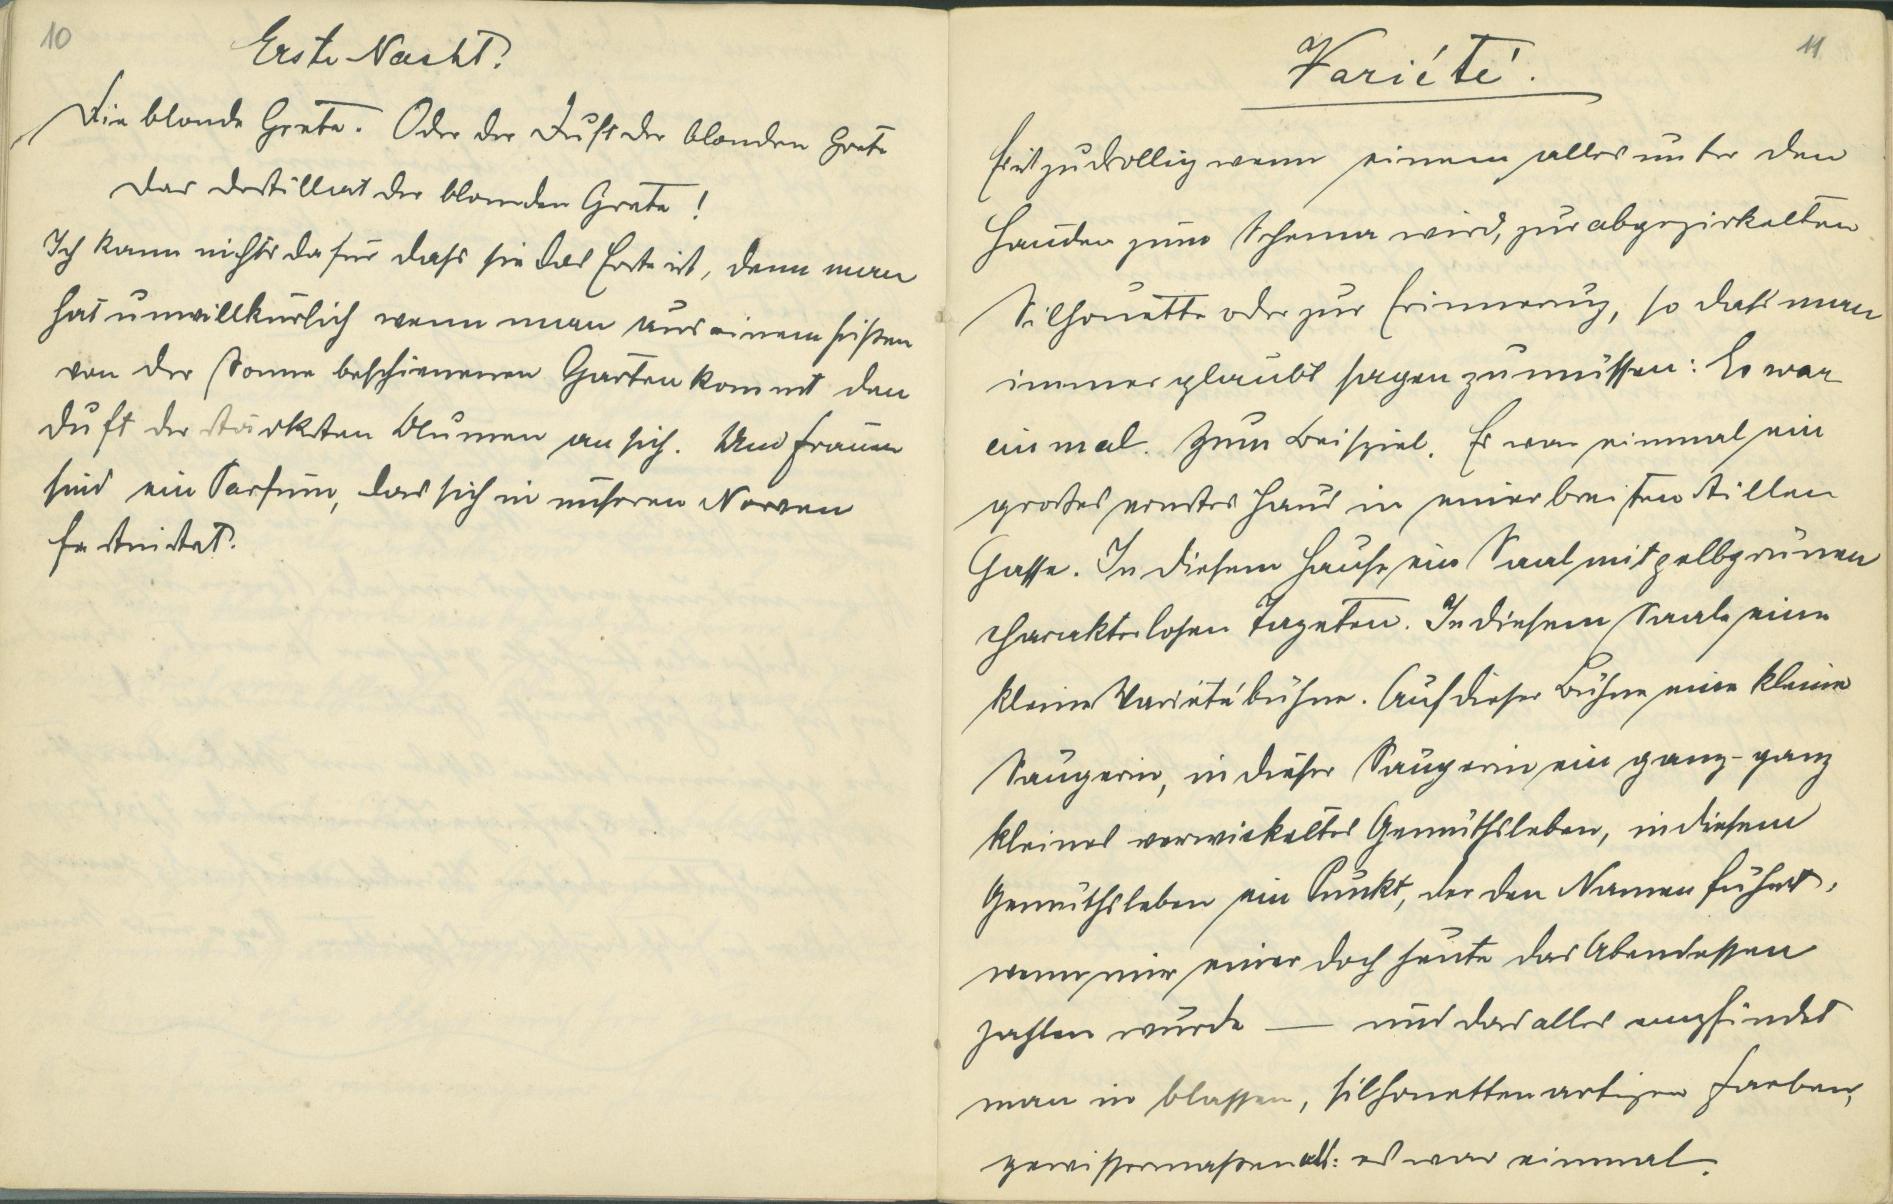 10
Erste Nacht.
Die blonde Grete. Oder der Duft der blonden Grete
das Destillat der blonden Grete!
Ich kann nichts dafür dass sie das Erste ist, denn man
hat unwillkürlich wenn man aus einem heißen
von der Sonne beschienenen Garten kommt den
Duft der stärksten Blumen an sich. Und Frauen
sind ein Parfum, das sich in unseren Nerven
festnistet.
11
Variété.
Es ist zu drollig wenn einem alles unter den
Händen zum Schema wird, zur abgezirkelten
Silhouette oder zur Erinnerung, so dass man
immer glaubt sagen zu müssen: Es war
einmal. Zum Beispiel. Es war einmal ein
großes ernstes Haus in einer breiten stillen
Gasse. In diesem Hause ein Saal mit gelbgrünen
charakterlosen Tapeten. In diesem Saale eine
kleine Variétébühne. Auf dieser Bühne eine kleine
Sängerin, in dieser Sängerin ein ganz-ganz
kleines verwickeltes Gemüthsleben, in diesem
Gemüthsleben ein Punkt, der den Namen führt,
wenn mir einer doch heute das Abendessen
zahlen würde — und das alles empfindet
man in blassen, silhouettenartigen Farben,
gewissermaßen als: es war einmal.